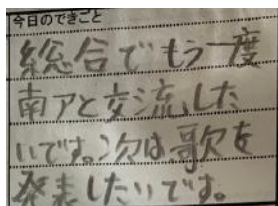 今日のできごと
総合でもう一度
南アと交流した
いです。次は歌を
発表したいです。